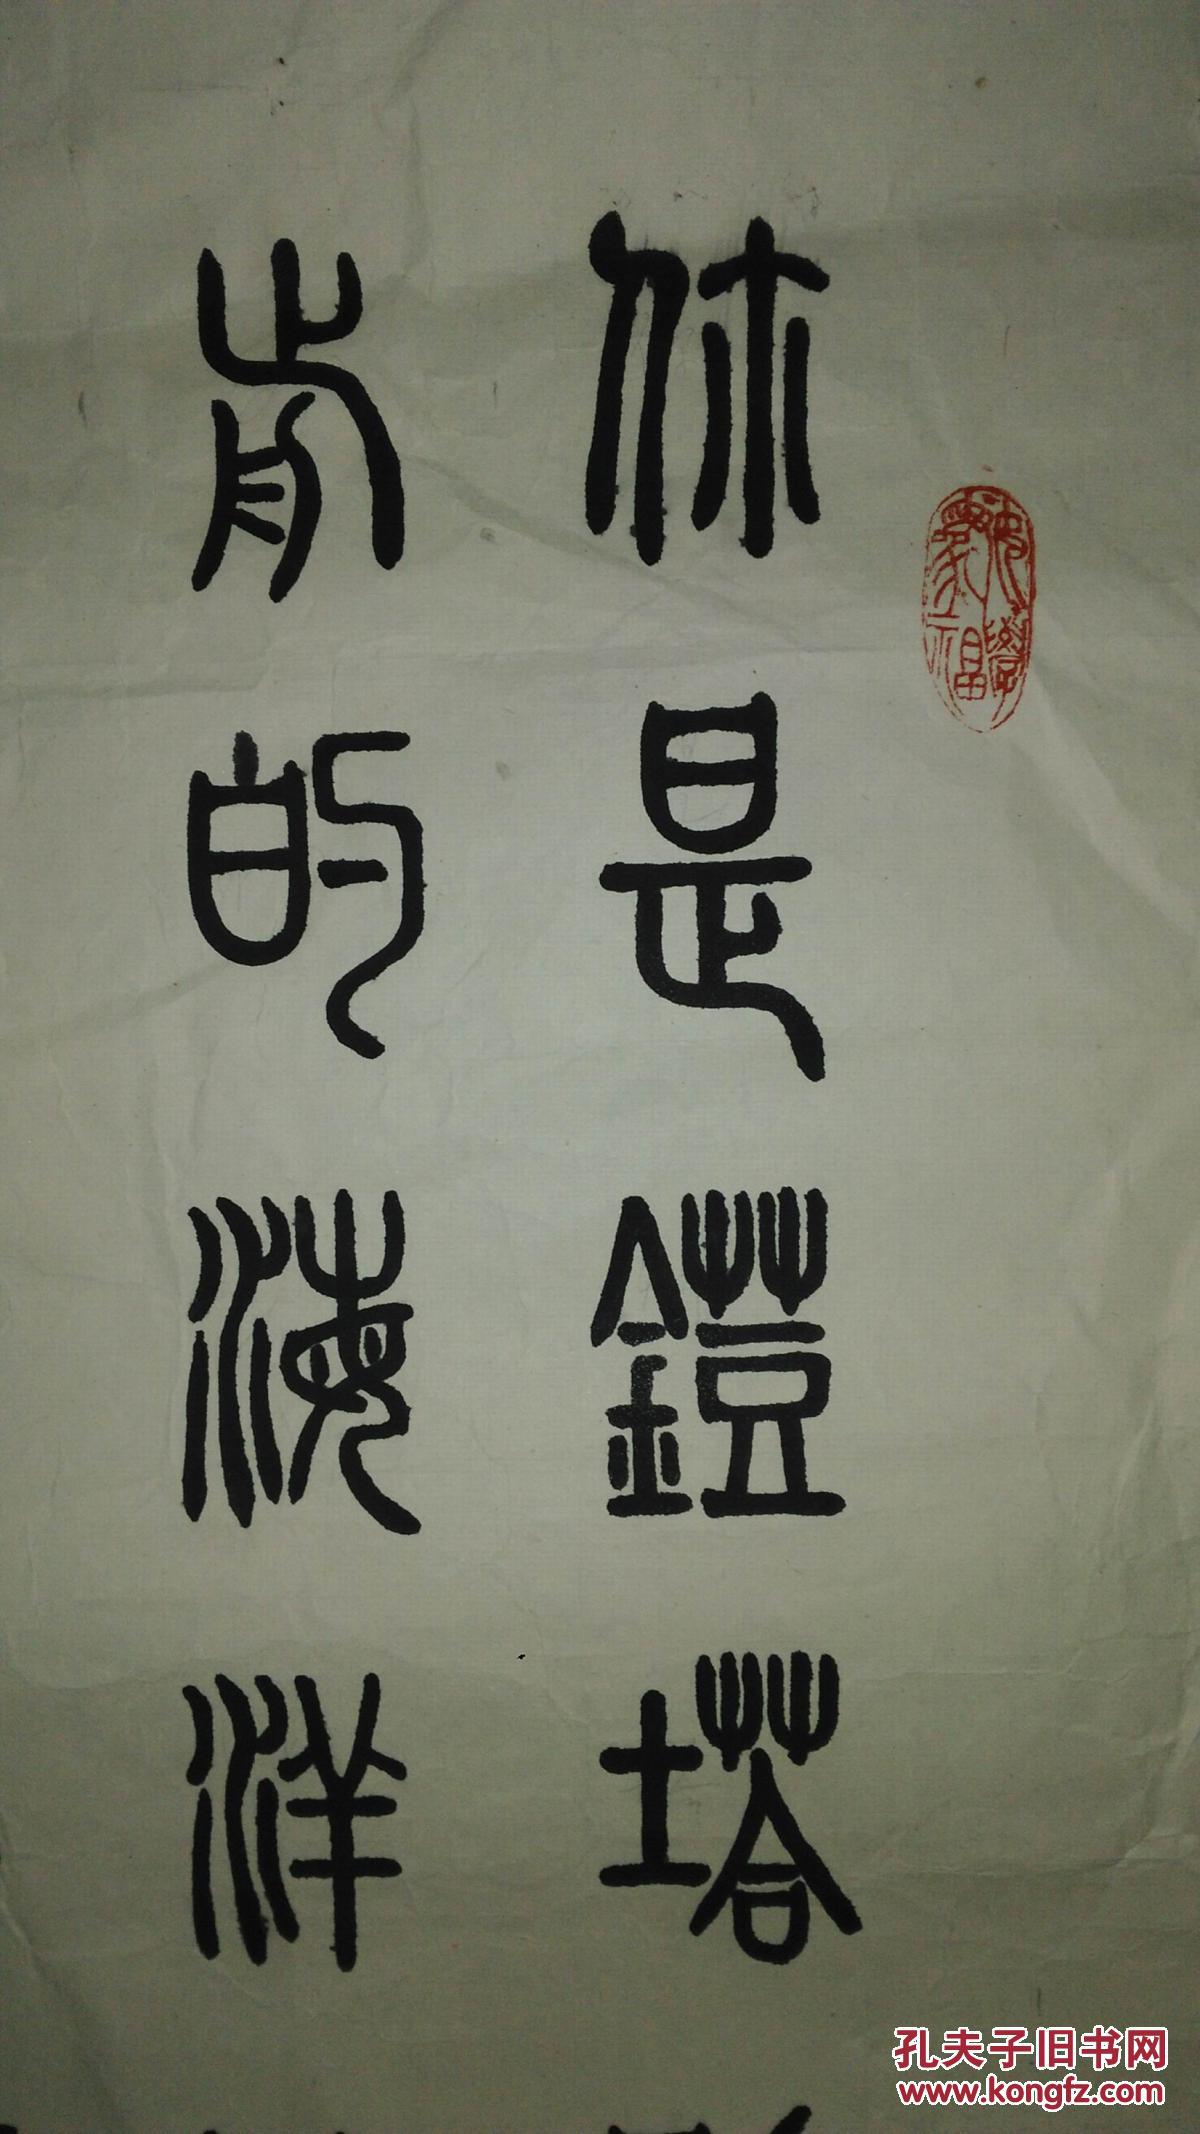 你是鐙塔
前的海洋
孔夫子旧书网
www.kongfz.com